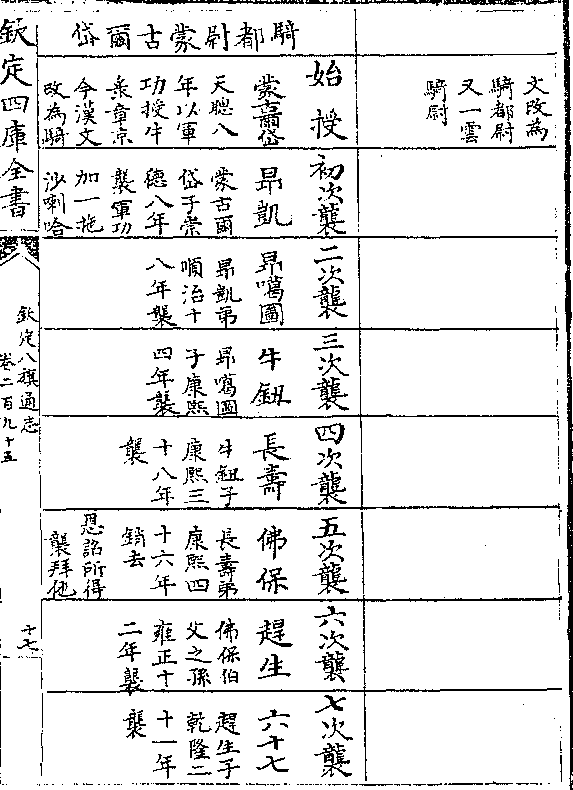 文改為
騎都尉
又一雲
騎尉
騎都尉蒙古爾岱
始授
蒙古爾岱
天聰八
年以軍
功授牛
彔章京
今漢文
改為騎
初次襲
昂凱
蒙古爾
岱子崇
德八年
襲軍功
加一拖
沙喇哈
二次襲
昂噶圖
昂凱弟
順治十
八年襲
三次襲
牛鈕
昂噶圖
子康熙
四年襲
四次襲
長壽
牛鈕子
康熙三
十八年
襲
五次襲
佛保
長壽弟
康熙四
十六年
銷去
恩詔所得
襲拜他
六次襲
趕生
佛保伯
父之孫
雍正十
二年襲
七次襲
六十七
趕生子
乾隆二
十一年
襲
欽定四庫全書
欽定八旗通志
卷二百九十五
十七